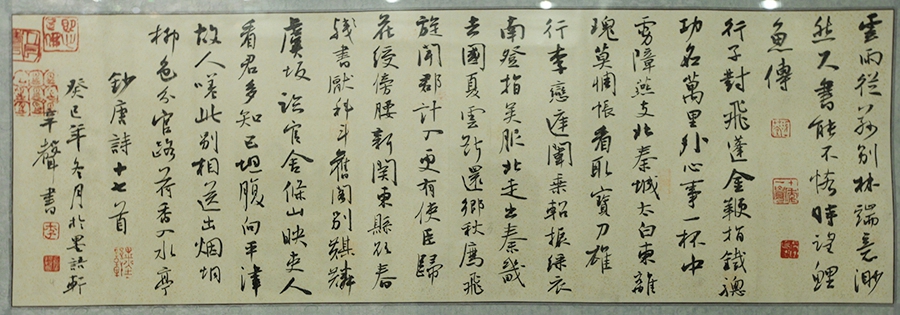 雲雨從茲別林端意渺
然尺書能不恡時望鯉
魚傳
行子對飛蓬金鞭指鐵驄
功名萬里外心事一杯中
虜障燕支北秦城太白東離
魂莫惆悵看取寶刀雄
行李戀庭闈乘軺振綵衣
南登指吴服北走出秦畿
去國夏雲斷還鄉秋鴈飛
旋聞郡計入更有使臣歸
花綬傍腰新關東縣欲春
殘書厭科斗舊閣別麒麟
虞坂臨官舍條山映吏人
看君多知己坦腹向平津
故人嗟此別相送出烟坰
柳色分官路荷香入水亭
鈔唐詩十七首
癸巳年冬月於軒
聲書